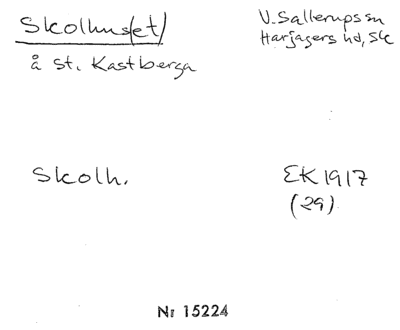 Skolhus(et)
V. Sallerups sn
Harjagers hd, Sk
å St. Kastberga
Skolh.
EK 1917
(29)
Nr 15224